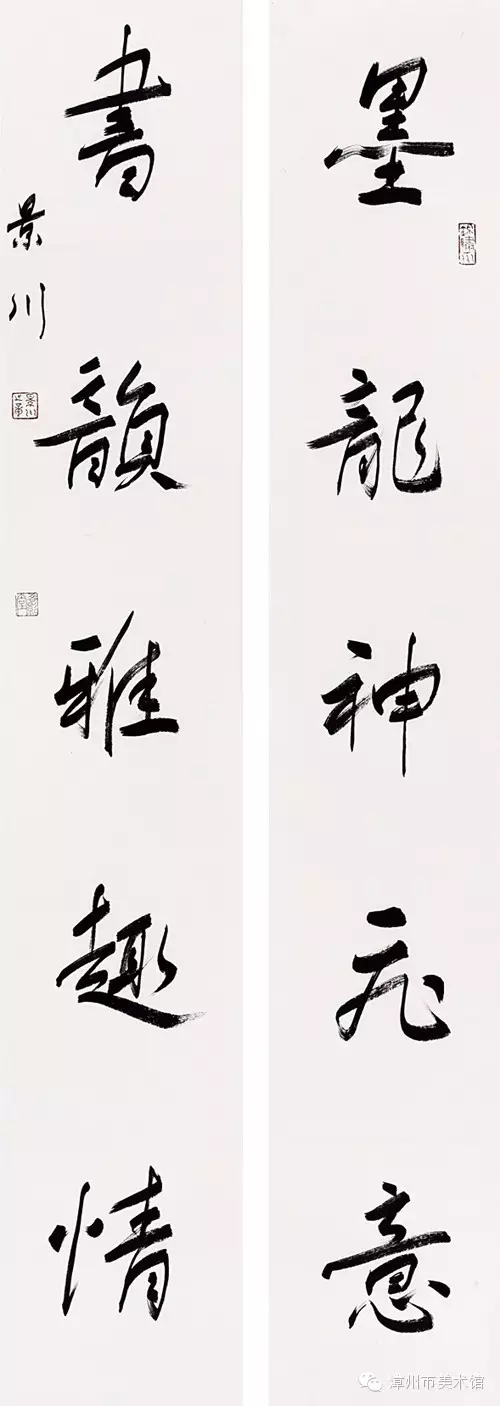 墨龍神飛意
書韻雅趣情
景川
漳州市美术馆